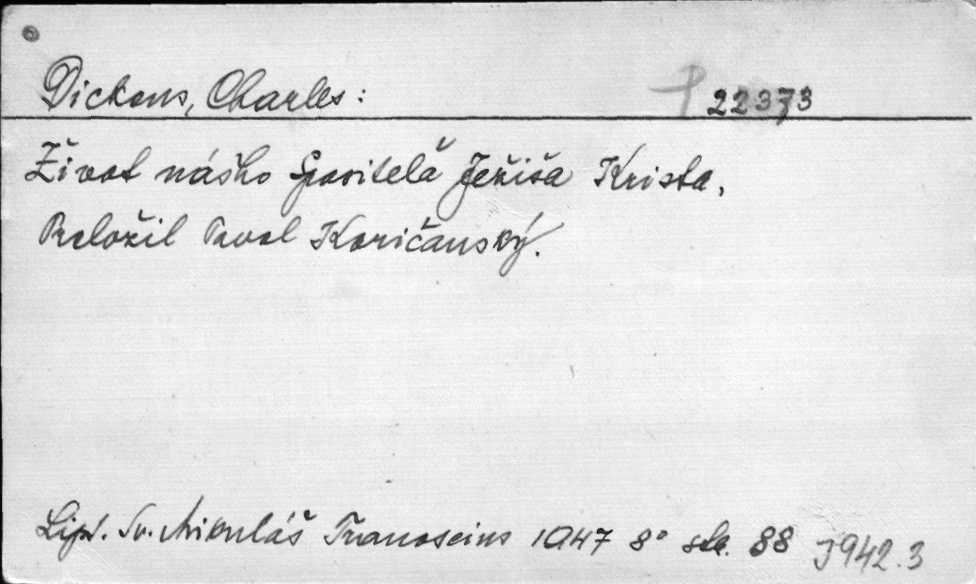 Dickens, Charles: P 22373
Život nášho Spasiteľa Ježiša Krista,
Preložil Pavol Koričanský.
Lipt. Sv. Mikuláš Tranoscius 1947 8° str. 88 J942.3